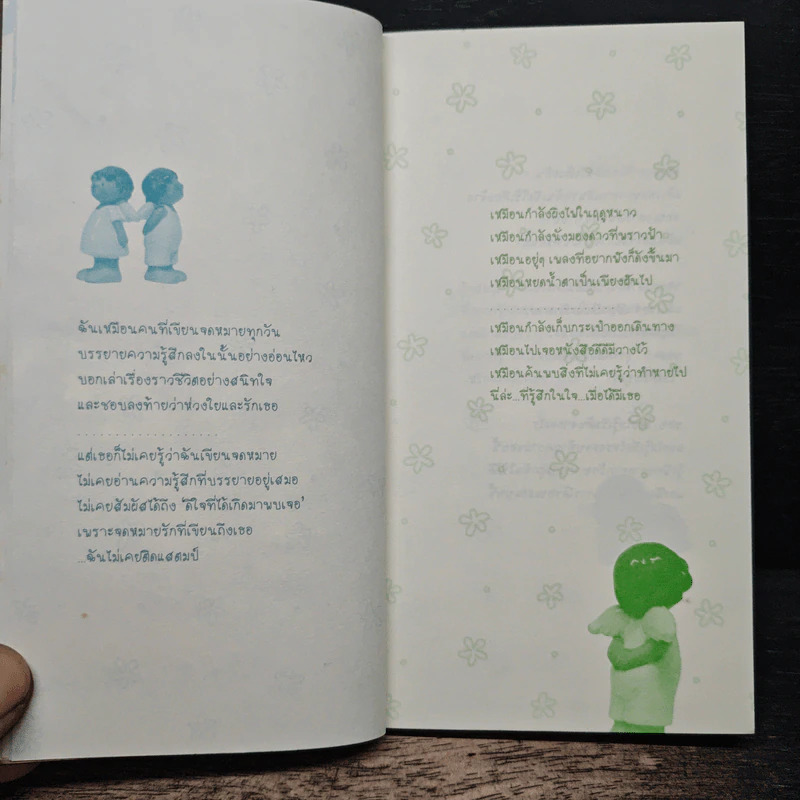 ฉันเหมือนคนที่เขียนจดหมายทุกวัน
บรรยายความรู้สึกลงในนั้นอย่างอ่อนไหว
บอกเล่าเรื่องราวชีวิตอย่างสนิทใจ
และชอบลงท้ายว่าห่วงใยและรักเธอ
...................
แต่เธอก็ไม่เคยรู้ว่าฉันเขียนจดหมาย
ไม่เคยอ่านความรู้สึกที่บรรยายอยู่เสมอ
ไม่เคยสัมผัสได้ถึง 'ดีใจที่ได้เกิดมาพบเจอ'
เพราะจดหมายรักที่เขียนถึงเธอ
...ฉันไม่เคยติดแสตมป์
เหมือนกำลังผิงไฟในฤดูหนาว
เหมือนกำลังนั่งมองดาวที่พราวฟ้า
เหมือนอยู่ๆ เพลงที่อยากฟังก็ดังขึ้นมา
เหมือนหยดน้ำตาเป็นเพียงฝันไป
...................
เหมือนกำลังเก็บกระเป๋าออกเดินทาง
เหมือนไปเจอหนังสือดีดีมีวางไว้
เหมือนค้นพบสิ่งที่ไม่เคยรู้ว่าทำหายไป
นี่ล่ะ...ที่รู้สึกในใจ...เมื่อได้มีเธอ